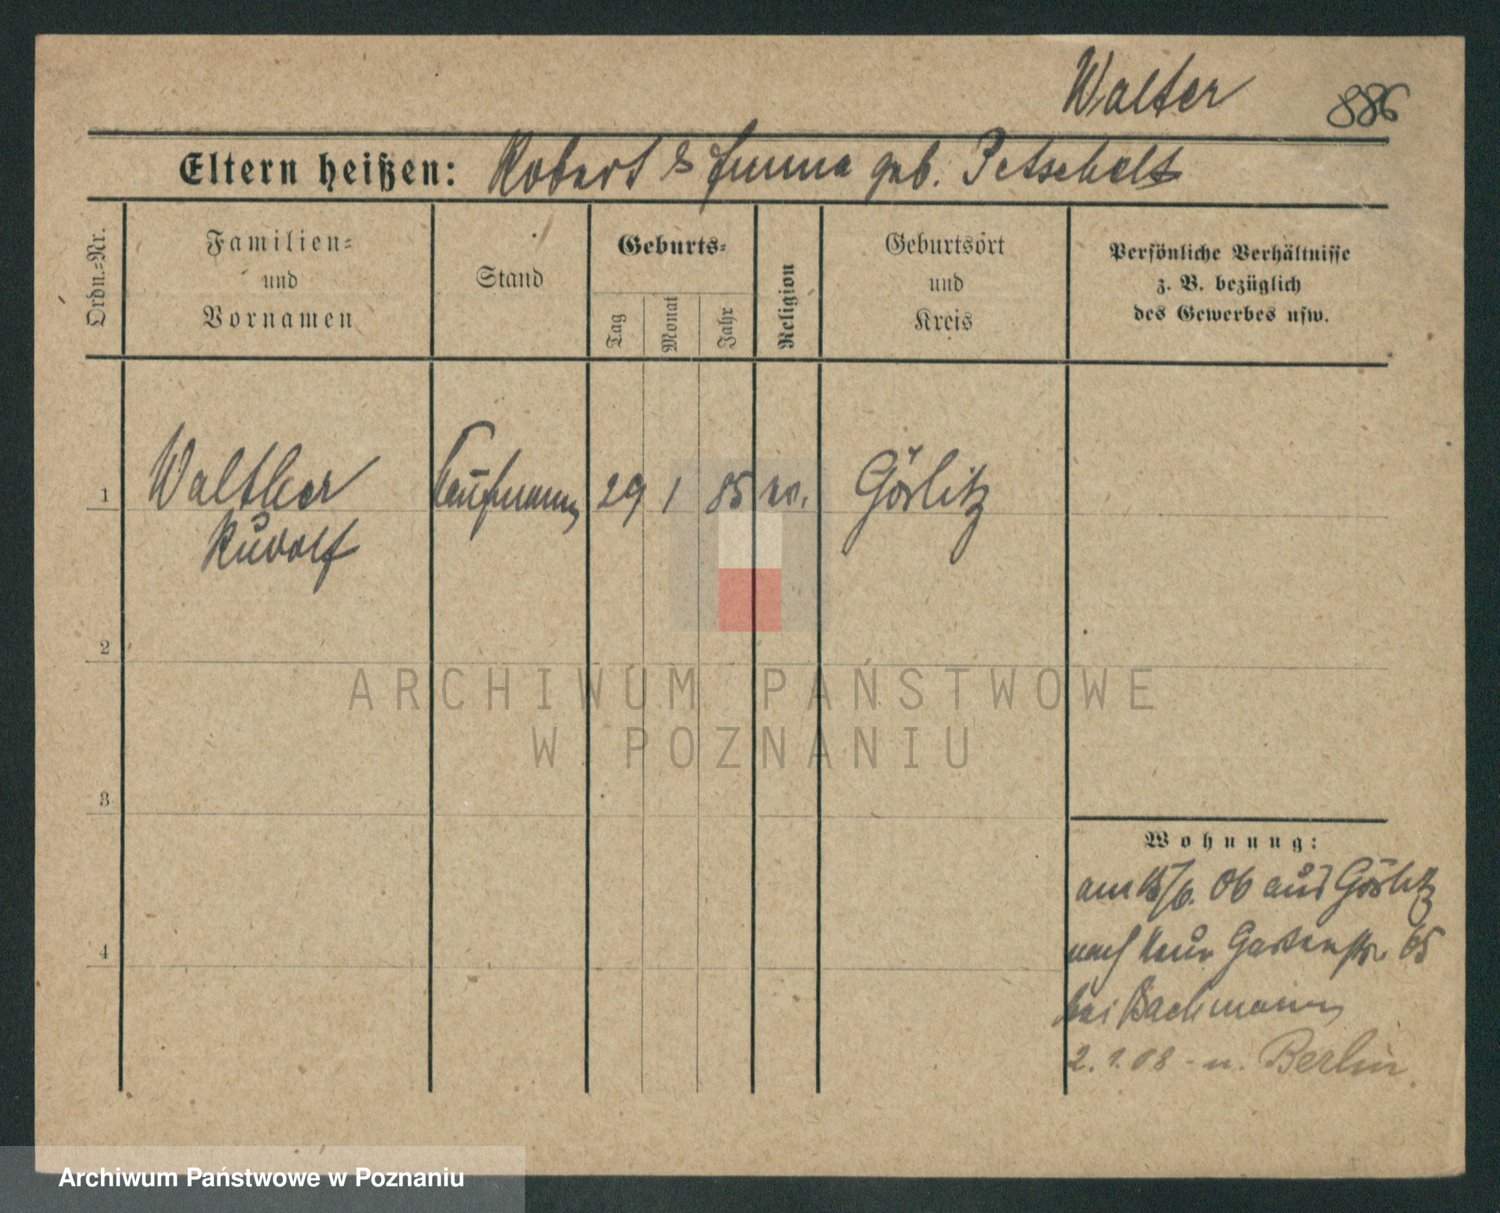 Walter 886
Eltern heißen: Robert & Emma geb. Petschelt
Ordn.=Nr.
Familien=
und
Vornamen
Stand
Geburts=
Tag
Monat
Jahr
Religion
Geburtsort
und
Kreis
Persönliche Verhältnisse
z. B. bezüglich
des Gewerbes usw.
1 Walther Kaufmann 29 1 85 ev. Görlitz
Rudolf
2
3
4
Wohnung:
am 15/6. 06 aus Görlitz
nach Gartenstr. 65
bei Bachmann
2.1.08 - n. Berlin
ARCHIWUM PAŃSTWOWE
W POZNANIU
Archiwum Państwowe w Poznaniu